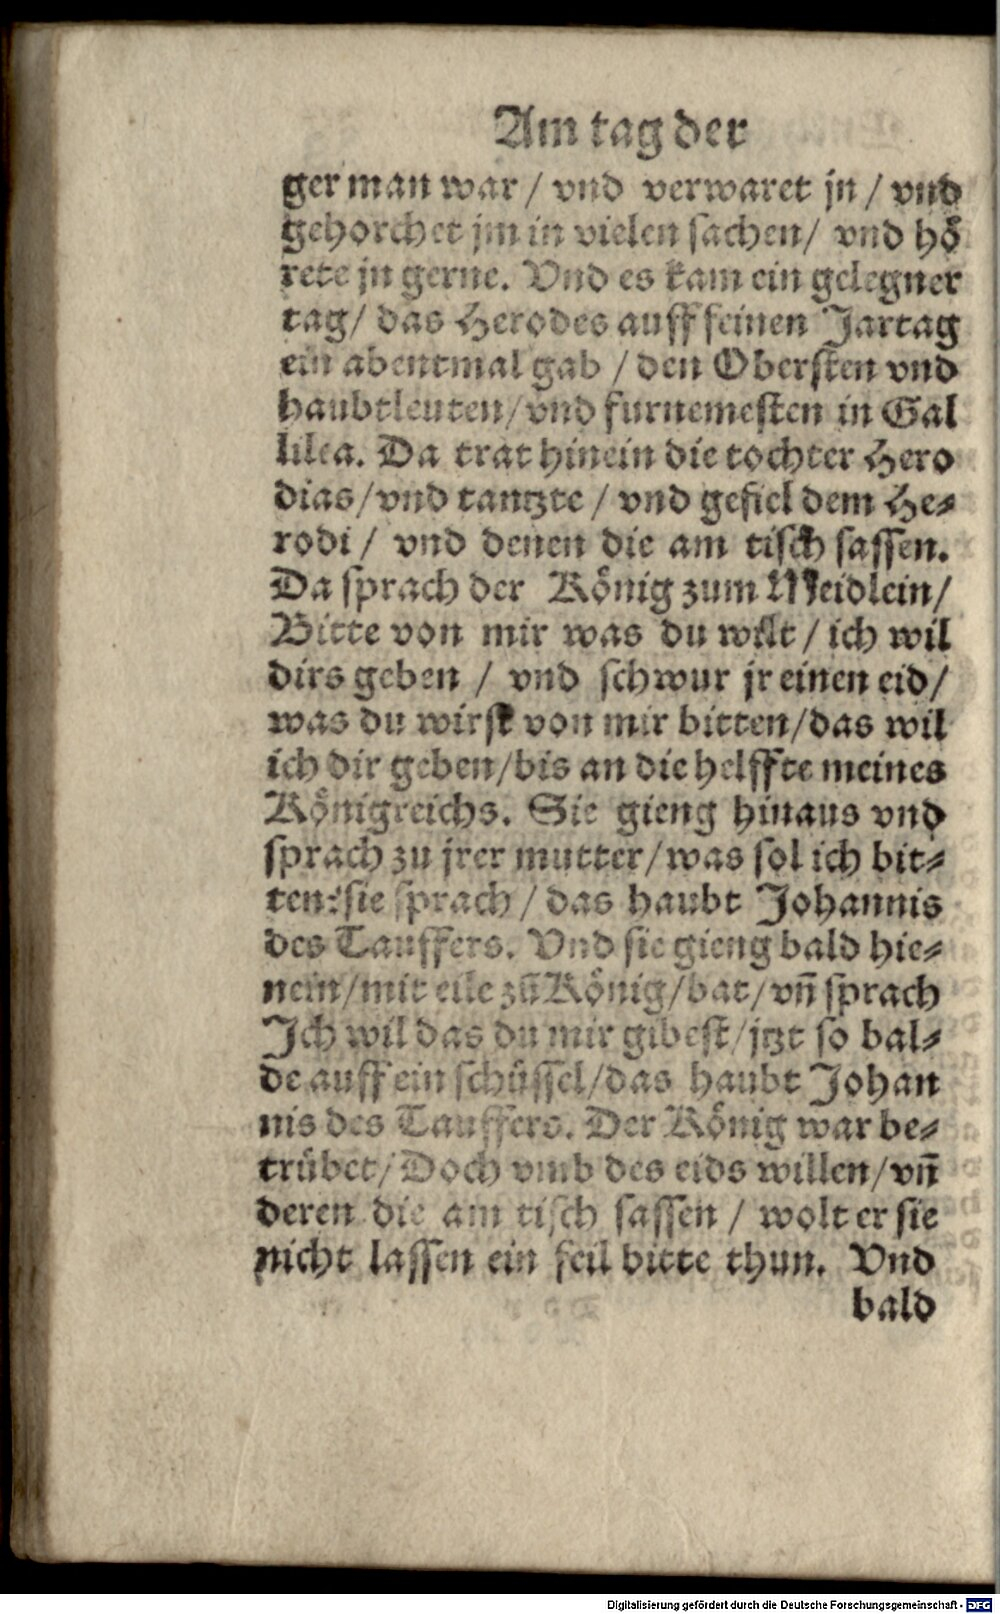 Am tag der
ger man war / vnd verwaret jn / vnd
gehorchet jm in vielen sachen / vnd hö
rete jn gerne. Vnd es kam ein gelegner
tag / das Herodes auff seinen Jartag
ein abentmal gab / den Obersten vnd
haubtleuten / vnd furnemesten in Gal
lilea. Da trat hinein die tochter Hero
dias / vnd tantzte / vnd gefiel dem He⸗
rodi / vnd denen die am tisch sassen.
Da sprach der König zum Meidlein /
Bitte von mir was du wilt / ich wil
dirs geben / vnd schwur jr einen eid /
was du wirst von mir bitten / das wil
ich dir geben / bis an die helffte meines
Königreichs. Sie gieng hinaus vnd
sprach zu jrer mutter / was sol ich bit⸗
ten? sie sprach / das haubt Johannis
des Tauffers. Vnd sie gieng bald hie⸗
nein / mit eile zū König / bat / vñ sprach
Ich wil das du mir gibest / jtzt so bal⸗
de auff ein schüssel / das haubt Johan
nis des Tauffers. Der König war be⸗
trübet / Doch vmb des eids willen / vñ
deren die am tisch sassen / wolt er sie
nicht lassen ein feil bitte thun. Vnd
bald
Digitalisierung gefördert durch die Deutsche Forschungsgemeinschaft - DFG